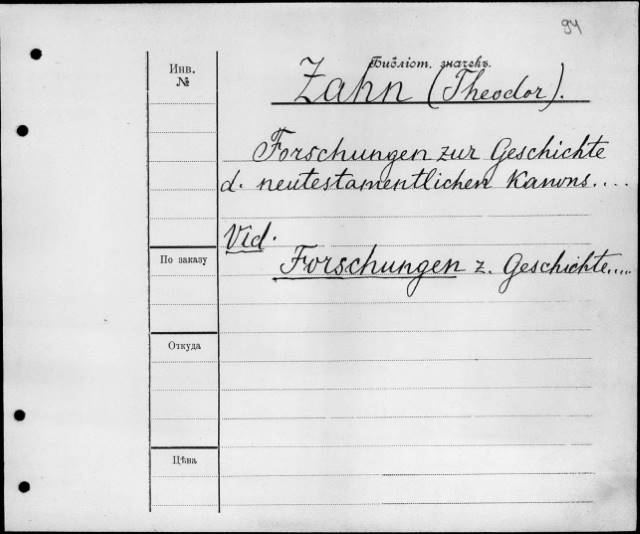 94
Библіот. значекъ.
Инв. №
Zahn (Theodor).
Forschungen zur Geschichte
d. neutestamentlichen Kanons....
Vid.
По заказу
Forschungen z. Geschichte....
Откуда
Цѣна